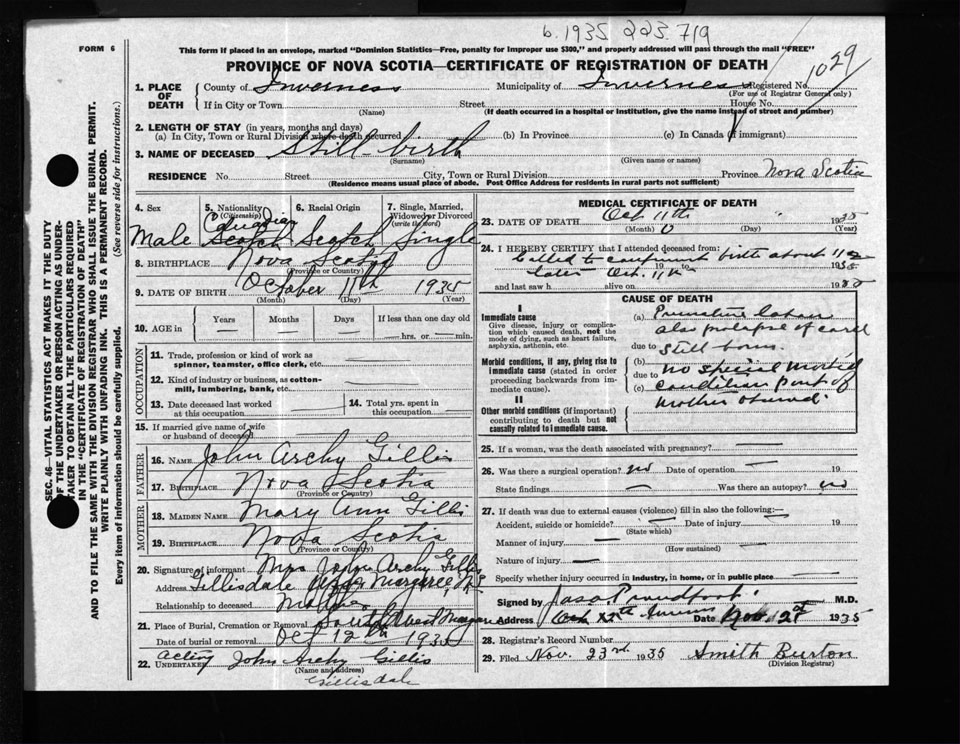 b. 1935 223.719
FORM 6
This form if placed in an envelope, marked "Dominion Statistics—Free, penalty for improper use $300," and properly addressed will pass through the mail "FREE"
PROVINCE OF NOVA SCOTIA—CERTIFICATE OF REGISTRATION OF DEATH
1029
1. PLACE OF DEATH
County of Inverness Municipality of Inverness Registered No.
(For use of Registrar General only)
If in City or Town Street House No.
(Name) (If death occurred in a hospital or institution, give the name instead of street and number)
2. LENGTH OF STAY (in years, months and days)
(a) In City, Town or Rural Division where death occurred (b) In Province (c) In Canada (if immigrant)
3. NAME OF DECEASED Still-birth
(Surname) (Given name or names)
RESIDENCE No. Street City, Town or Rural Division Province Nova Scotia
(Residence means usual place of abode. Post Office Address for residents in rural parts not sufficient)
4. Sex 5. Nationality (Citizenship) 6. Racial Origin 7. Single, Married, Widowed or Divorced (write the word)
Canadian
Male Scotch Scotch Single
8. BIRTHPLACE Nova Scotia
(Province or Country)
9. DATE OF BIRTH October 11th 1935
(Month) (Day) (Year)
10. AGE in Years Months Days If less than one day old
— hrs. or — min.
OCCUPATION
11. Trade, profession or kind of work as spinner, teamster, office clerk, etc. —
12. Kind of industry or business, as cotton-mill, lumbering, bank, etc. —
13. Date deceased last worked at this occupation — 14. Total yrs. spent in this occupation —
15. If married give name of wife or husband of deceased —
FATHER
16. NAME John Archy Gillis
17. BIRTHPLACE Nova Scotia
(Province or Country)
MOTHER
18. MAIDEN NAME Mary Ann Gillis
19. BIRTHPLACE Nova Scotia
(Province or Country)
20. Signature of informant Mrs John Archy Gillis
Address Gillisdale Margaree N.S
Relationship to deceased Mother
21. Place of Burial, Cremation or Removal South West Margaree
Date of burial or removal Oct 12th 1935
22. Acting UNDERTAKER John Archy Gillis
(Name and address)
Gillisdale
MEDICAL CERTIFICATE OF DEATH
23. DATE OF DEATH Oct 11th 1935
(Month) (Day) (Year)
24. I HEREBY CERTIFY that I attended deceased from:
Called to confinement birth about
later Oct. 11th 19 1935
and last saw h alive on 1935
CAUSE OF DEATH
I
Immediate cause
Give disease, injury or complication which caused death, not the mode of dying, such as heart failure, asphyxia, asthenia, etc.
(a) Premature labor
also prolapse of cord
due to Still born.
Morbid conditions, if any, giving rise to immediate cause (stated in order proceeding backwards from immediate cause).
(b)
due to No special morbid
(c) condition part of
mother observed.
II
Other morbid conditions (if important) contributing to death but not causally related to immediate cause.
25. If a woman, was the death associated with pregnancy? —
26. Was there a surgical operation? no Date of operation — 19
State findings — Was there an autopsy? no
27. If death was due to external causes (violence) fill in also the following:—
Accident, suicide or homicide? — Date of injury — 19
(State which)
Manner of injury — —
(How sustained)
Nature of injury —
Specify whether injury occurred in industry, in home, or in public place —
Signed by M.D.
Address Date Nov. 1935
28. Registrar's Record Number
29. Filed Nov. 23rd 1935 Smith Burton
(Division Registrar)
SEC. 46—VITAL STATISTICS ACT MAKES IT THE DUTY
OF THE UNDERTAKER OR PERSON ACTING AS UNDER-
TAKER TO OBTAIN ALL THE PARTICULARS REQUIRED
IN THE "CERTIFICATE OF REGISTRATION OF DEATH"
AND TO FILE THE SAME WITH THE DIVISION REGISTRAR WHO SHALL ISSUE THE BURIAL PERMIT.
WRITE PLAINLY WITH UNFADING INK. THIS IS A PERMANENT RECORD.
Every item of information should be carefully supplied. (See reverse side for instructions.)